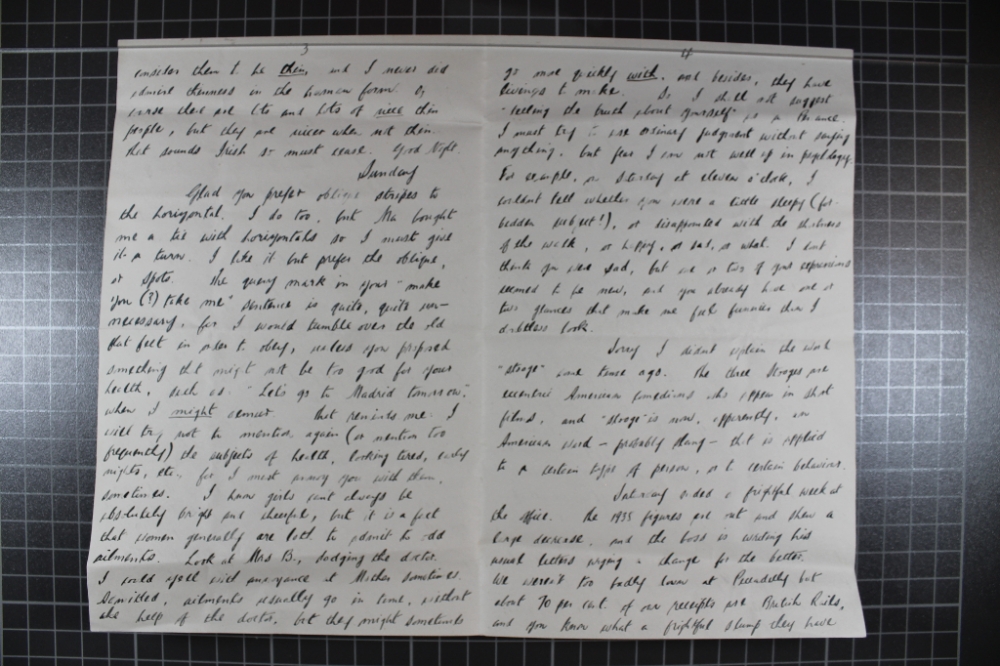 3
consider them to be thin, and I never did
admire thinness in the human form. Of
course there are lots and lots of nice thin
people, but they are nicer when not thin.
that sounds Irish so must cease. Good Night.
Sunday
Glad you prefer oblique stripes to
the horizontal. I do too, but Ma bought
me a tie with horizontals so I must give
it a turn. I like it but prefer the oblique,
or spots. The query mark in your "make
you (?) take me" sentence is quite, quite un-
necessary, for I would tumble over the old
flat feet in order to obey, unless you proposed
something that might not be too good for your
health, such as "Let's go to Madrid tomorrow,"
when I might demur. That reminds me. I
will try not to mention again (or mention too
frequently) the subjects of health, looking tired, early
nights, etc., for I must annoy you with them,
sometimes. I know girls can't always be
absolutely bright and cheerful, but it is a fact
that women generally are loth to admit to odd
ailments. Look at Mrs B., dodging the doctor.
I could yell with annoyance at Mother sometimes.
Admitted, ailments usually go in time, without
the help of the doctor, but they might sometimes
4
go more quickly with, and besides, they have
livings to make. So, I shall not suggest
"telling the truth about yourself" as a
I must try to use ordinary judgment without saying
anything, but fear I am not well up in psychology.
For example, on Saturday at eleven o'clock, I
couldn't tell whether you were a little sleepy (for-
bidden subject!), or disappointed with the shortness
of the walk, or happy, or sad, or what. I don't
think you were sad, but one or two of your expressions
seemed to be new, and you already have one or
two glances that make me feel funnier than I
doubtless look.
Sorry I didn't explain the word
"stooge" some time ago. The three Stooges are
eccentric American comedians who appear in short
films, and "stooge" is now, apparently, an
American word - probably slang - that is applied
to a certain type of person, or to certain behaviour.
Saturday ended a frightful week at
the office. The 1935 figures are out and show a
large decrease, and the boss is writing his
usual letters urging a change for the better.
We weren't too badly down at Piccadilly but
about 70 per cent. of our receipts are British Rails,
and you know what a frightful slump they have